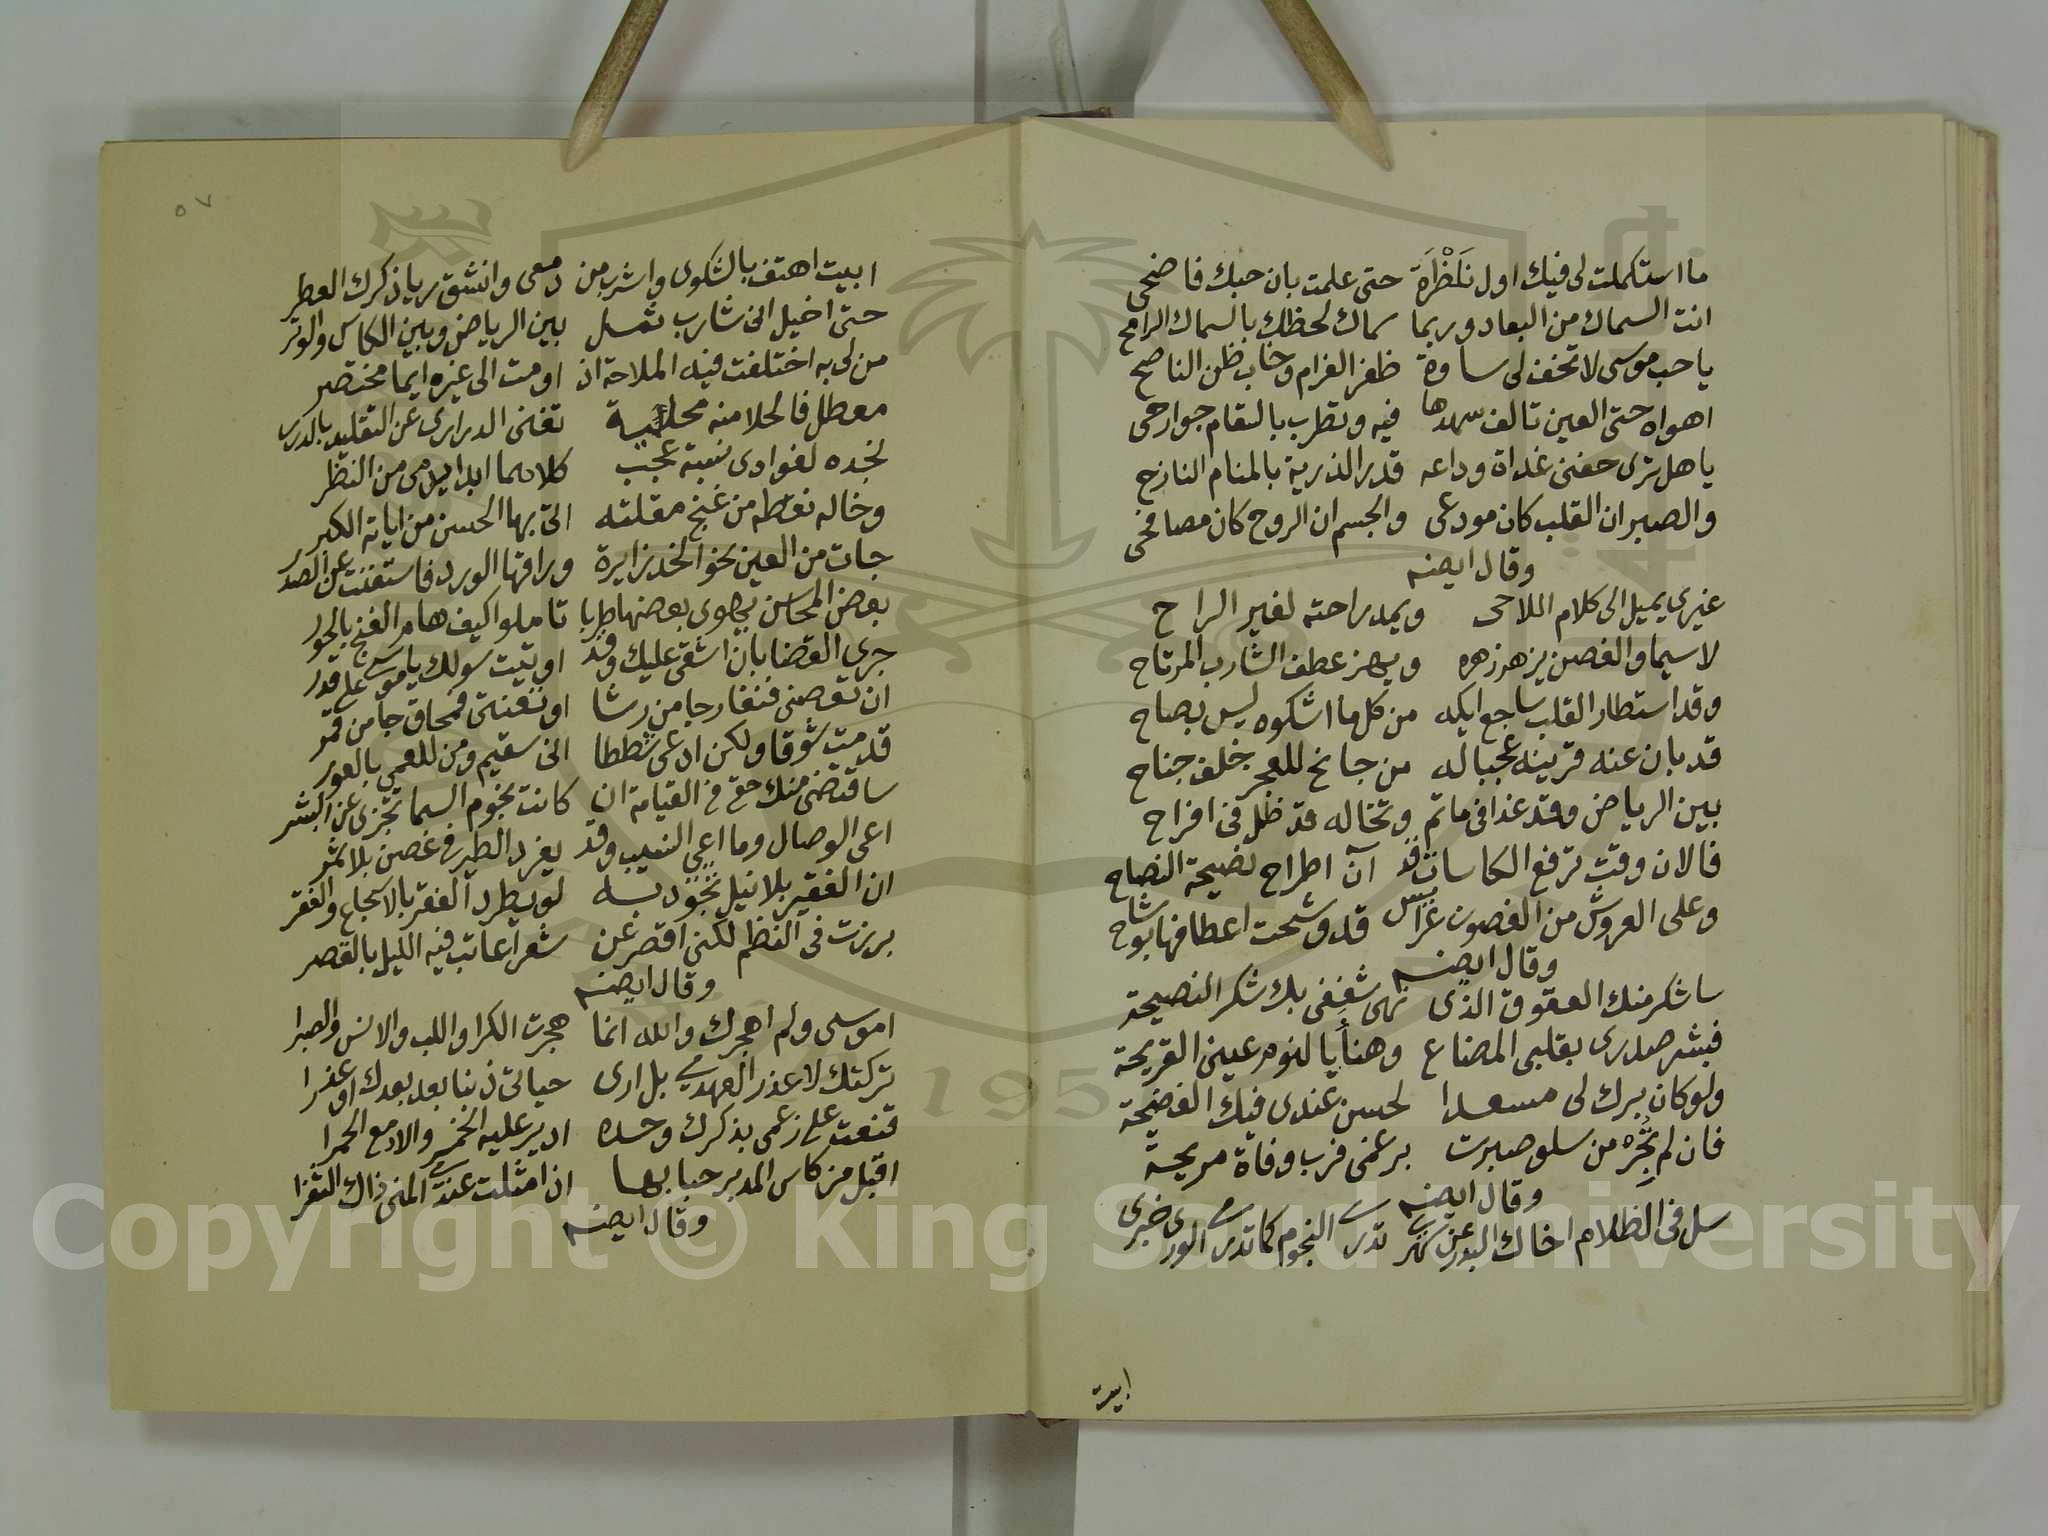 ما استكملت لى فيك اول نَظْرَة حتى علمت بان حبك فاضحى
انت السماك من البعاد وربما سماك لحظك بالسماك الرامح
يا حب موسى لا تخف لى ساوة ظفز الغرام وخاب ظن الناصح
اهواه حتى العين تالف سهدها فيه وتطرب بالسقام جوارحى
يا هل ترى جفنى غداة وداعه قدر الذرية بالمنام النازح
والصبر ان القلب كان مودعى والجسم ان الروح كان مصافحى
وقال ايضه
غيرى يميل الى كلام اللاحى ويمد راحته لغير الراح
لا سيما والغصن يزهر زهره ويهز عطف الشارب المرتاح
وقد استطار القلب ساجع ايكه من كل ما اشكوه ليس بصاح
قد بان عنه قرينه عجبا له من جانح للعجز خلف جناح
بين الرياض وقد غدا فى ماتم وتخاله قد ظل فى افراح
فالان وقت ترفع الكاسات قد آن اطراح نصيحة النصاح
وعلى العروش من الغصون عرايس قد وشحت اعطافها بوشاح
وقال ايضه
ساشكر منك العقوق الذى نهى شغفى بك شكر النصيحة
فبشر صدرى بقلبى المضاع وهنأ بالنوم عينى القريحة
ولو كان برك لى مسعدا لحسن عندى فيك الفضيحة
فان لم تُجُره من سلو صبرت برغمى فرب وفاة مريحة
وقال ايضه
سل فى الظلام اخاك البدر عن سهرى تدرى النجوم كما تدرى الورى خبرى
ابيت
٥٧
ابيت اهتف بالشكوى واشرب من دمعى وانشق ريا ذكرك العطر
حتى اخيل انى شارب ثمل بين الرياض وبين الكاس والوتر
من لى به اختلفت فيه الملاحة اذ اومت الى غيره ايما مختصر
معطل فالحلا منه محلئية تغنى الدرارى عن التقليد بالدرر
بخده لفوادى نسبة عجب كلاهما ابدا يدمى من النظر
وخاله نقطه من غنج مقلته اتى بها الحسن من اياته الكبر
جات من العين نحو الخد زايرة وراقها الورد فاستغنت عن الصدر
بعض المحاسن يهوى بعضها طربا تاملوا كيف هام الغنج بالحور
جرى القضا بان اشقى عليك وقد اوتيت سولك يا موسى على قدر
ان تقصنى فنفار جا من رشا او تضنتى فمحاق جا من قمر
قد مت شوقا ولكن ادعى شططا انى سقيم ومن للعمى بالعور
ساقتضى منك حقى فى القيامة ان كانت نجوم السما تجزى عن البشر
اعى الوصال وما اعى النسيب وقد يغرد الطير فى غصن بلا ثمر
ان الفقير بلا نيل تجود به لو يطرد الفقر بالاسجاع والفقر
برزت فى النظم لكنى اقصر عن شعر اعاتب فيه الليل بالقصر
وقال ايضه
اموسى ولم اهجرك والله انما هجرت الكرا واللب والانس والصبرا
تركتك لا عذر العهدى بل ارى حياتى ذنبا بعد بعدك او عذرا
قنعت على زعمى بذكرك وحده ادير عليه الخمر والادمع الحمرا
اقبل من كاس المدير حبابها اذا مثلت عندى المنى ذاك الثغرا
وقال ايضه
Copyright © King Saud University
1957